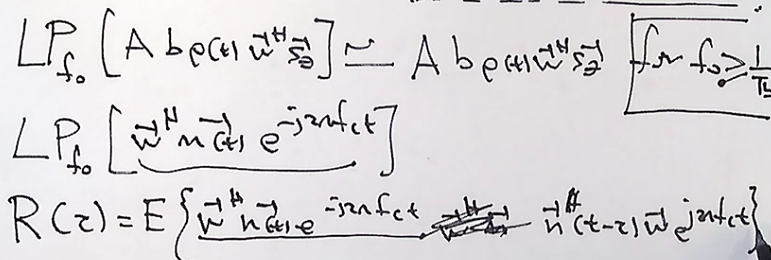 LP_{f_0} [A b ρ(t) \vec{w}^H \vec{s}_2] ≃ A b ρ(t) \vec{w}^H \vec{s}_2 for f_0 ≥ 1/T_b
LP_{f_0} [\vec{w}^H \vec{n}(t) e^{-j2πf_c t}]
R(τ) = E{\vec{w}^H \vec{n}(t) e^{-j2πf_c t} \vec{n}^H(t-τ) \vec{w} e^{j2πf_c t}}